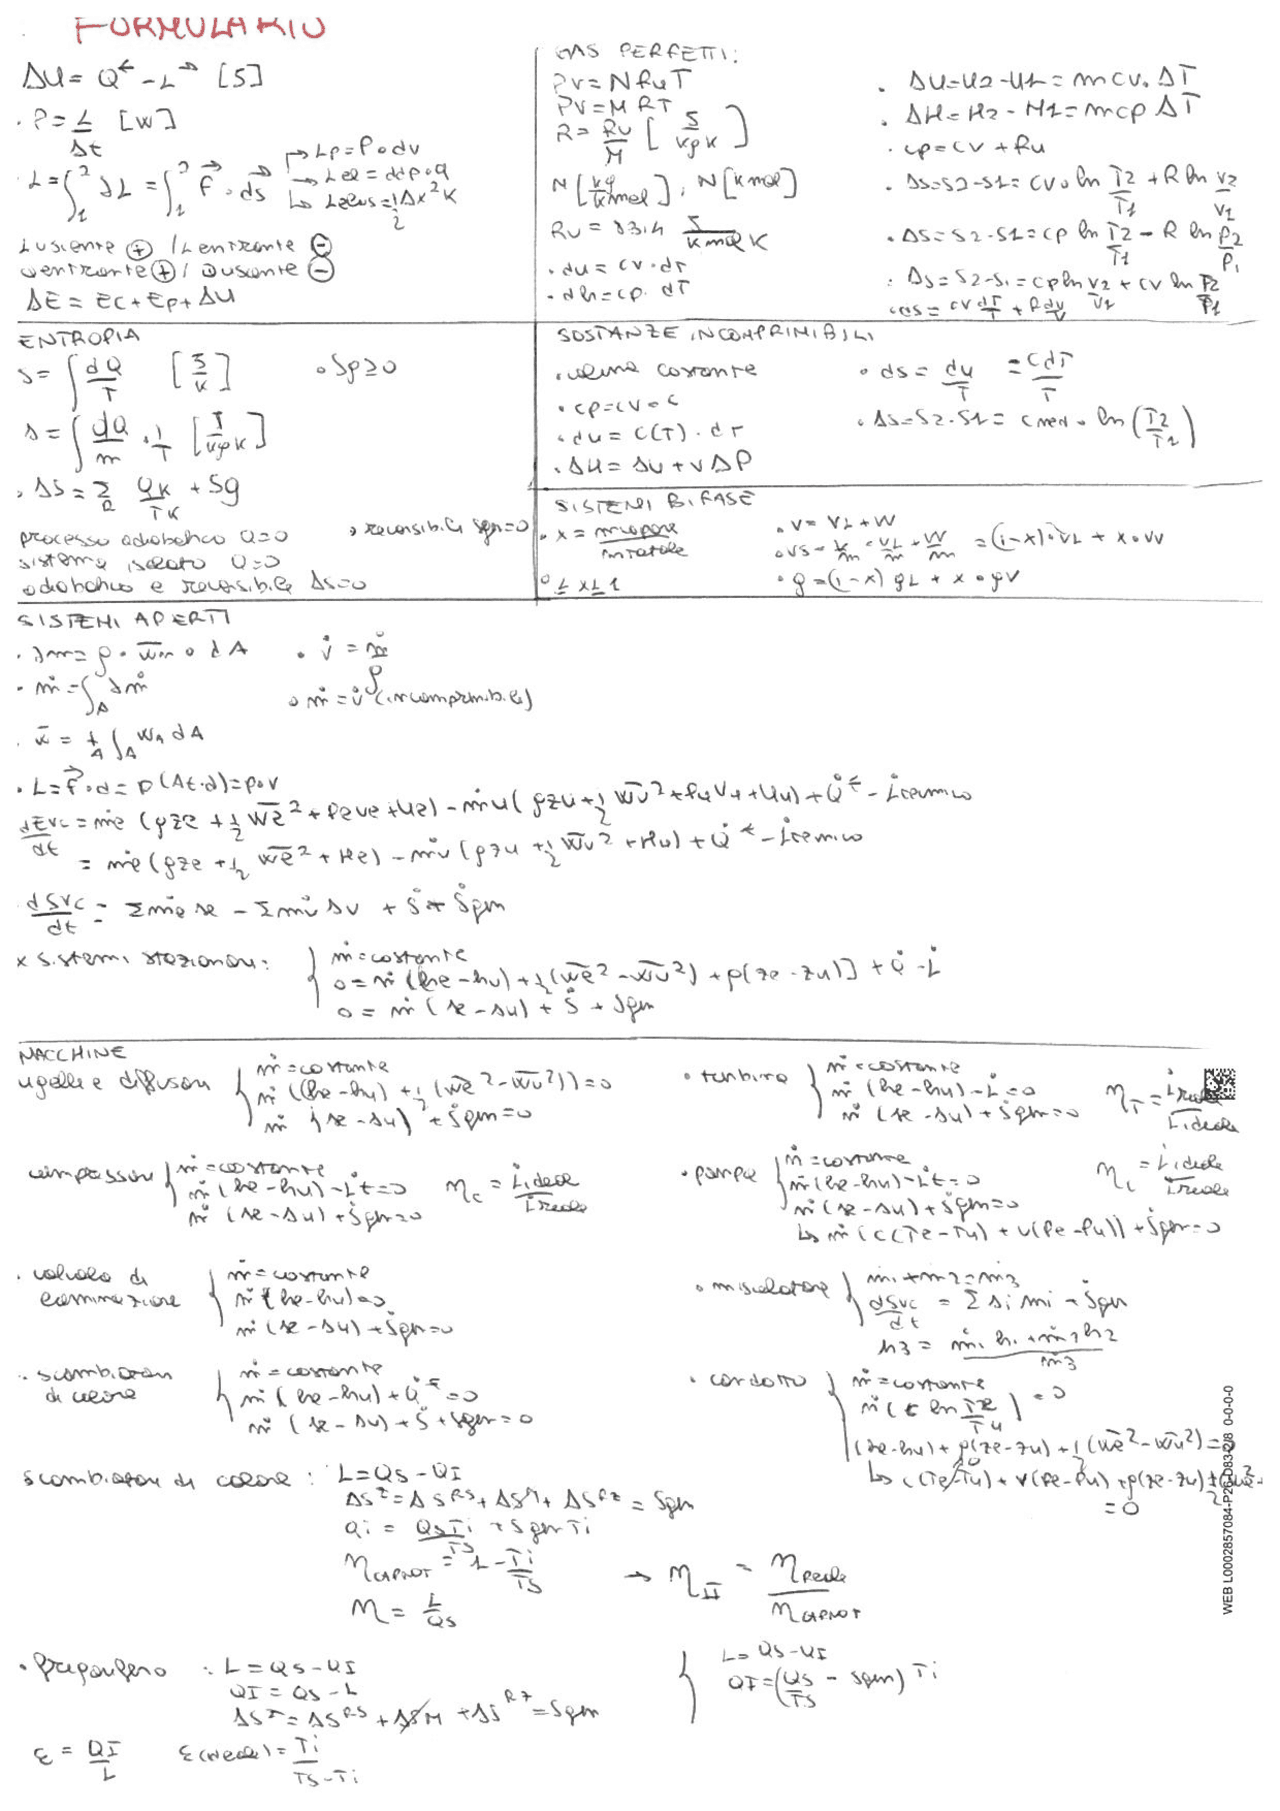 FORMULARIO
ΔU = Q← - L→ [J]
· P = L/Δt [W]
· L = ∫₁² δL = ∫₁² F⃗ · ds⃗
→ Lp = P · dv
↳ Lelas = ½ Δx² K
L uscente ⊕ / L entrante ⊖
Q entrante ⊕ / Q uscente ⊖
ΔE = Ec + Ep + ΔU
GAS PERFETTI:
PV = N Ru T
PV = M R T
R = Ru/M [J/kg K]
M [kg/kmol], N [kmol]
Ru = 8314 J/kmol K
· du = cv · dT
· dh = cp · dT
· ΔU = U2 - U1 = m cv · ΔT
· ΔH = H2 - H1 = m cp ΔT
· cp = cv + Ru
· Δs = s2 - s1 = cv · ln T2/T1 + R ln v2/v1
· Δs = s2 - s1 = cp ln T2/T1 - R ln P2/P1
· Δs = s2 - s1 = cp ln v2/v1 + cv ln P2/P1
· ds = cv dT/T + R dv/v
ENTROPIA
S = ∫ dQ/T [J/K] · Sg ≥ 0
s = ∫ dQ/m · 1/T [J/kg K]
· ΔS = Σ Qk/Tk + Sg
processo adiabatico Q=0 · reversibile Sgen=0
sistema isolato Q=0
adiabatico e reversibile Δs=0
SOSTANZE INCOMPRIMIBILI
· volume costante
· cp = cv = c
· du = c(T) · dT
· ΔH = Δu + v ΔP
· ds = du/T = c dT/T
· Δs = s2 - s1 = cmed · ln (T2/T1)
SISTEMI BIFASE
· x = mvapore/mtotale
0 ≤ x ≤ 1
· V = VL + VV
· vs = V/m = VL/m + VV/m = (1-x) · vL + x · vv
· g = (1-x) gL + x · gV
SISTEMI APERTI
· δm = ρ · w̄n · dA · V̇ = ṁ/ρ
· ṁ = ∫A δṁ · ṁ = v̇ (incomprimibile)
· w̄ = 1/A ∫A wn dA
· L = F⃗ · d = p (At · d) = p · v
dEvc/dt = ṁe (gze + ½ w̄e² + Peve + Ue) - ṁu (gzu + ½ w̄u² + PuVu + Uu) + Q̇← - L̇tecnico
= ṁe (gze + ½ w̄e² + He) - ṁu (gzu + ½ w̄u² + Hu) + Q̇← - L̇tecnico
dSvc/dt = Σṁe se - Σṁu su + Ṡ← + Ṡgen
x sistemi stazionari: { ṁ = costante
0 = ṁ (he - hu) + ½ (w̄e² - w̄u²) + g(ze - zu)] + Q̇ - L̇
0 = ṁ (se - su) + Ṡ + Ṡgen
MACCHINE
ugelli e diffusori { ṁ = costante
ṁ ((he - hu) + ½ (w̄e² - w̄u²)) = 0
ṁ (se - su) + Ṡgen = 0
· turbina { ṁ = costante
ṁ (he - hu) - L̇ = 0
ṁ (se - su) + Ṡgen = 0
ηT = L̇reale/L̇ideale
compressori { ṁ = costante
ṁ (he - hu) - L̇t = 0
ṁ (se - su) + Ṡgen = 0
ηc = L̇ideale/L̇reale
· pompa { ṁ = costante
ṁ (he - hu) - L̇t = 0
ṁ (se - su) + Ṡgen = 0
↳ ṁ (c(Te - Tu) + v(Pe - Pu)) + Ṡgen = 0
ηc = L̇ideale/L̇reale
· valvola di laminazione { ṁ = costante
ṁ (he - hu) = 0
ṁ (se - su) + Ṡgen = 0
· miscelatore { ṁ1 + ṁ2 = ṁ3
dSvc/dt = Σ si ṁi + Ṡgen
h3 = ṁ1 h1 + ṁ2 h2/ṁ3
· scambiatori di calore { ṁ = costante
ṁ (he - hu) + Q̇← = 0
ṁ (se - su) + Ṡ + Ṡgen = 0
· condotto { ṁ = costante
ṁ (c ln Te/Tu) = 0
(he - hu) + g(ze - zu) + ½ (w̄e² - w̄u²) = 0
↳ c(Te - Tu) + v(Pe - Pu) + g(ze - zu) + ½ (w̄e² -
= 0
scambiatori di calore : L = QS - QI
ΔSᶻ = ΔSᴿˢ + ΔSᴹ + ΔSᴿᶻ = Sgen
Qi = QsTi/Ts + Sgen Ti
ηCARNOT = 1 - Ti/Ts → ηII = ηreale/ηCARNOT
η = L/Qs
· frigorifero : L = QS - QI
QI = QS - L
ΔSᶻ = ΔSᴿˢ + ΔSM + ΔSᴿᶻ = Sgen
{ L = QS - QI
QI = (QS/TS - Sgen) Ti
ε = QI/L ε(ideale) = Ti/Ts - Ti
WEB L0002857084-P26-D83-2/8 0-0-0-0